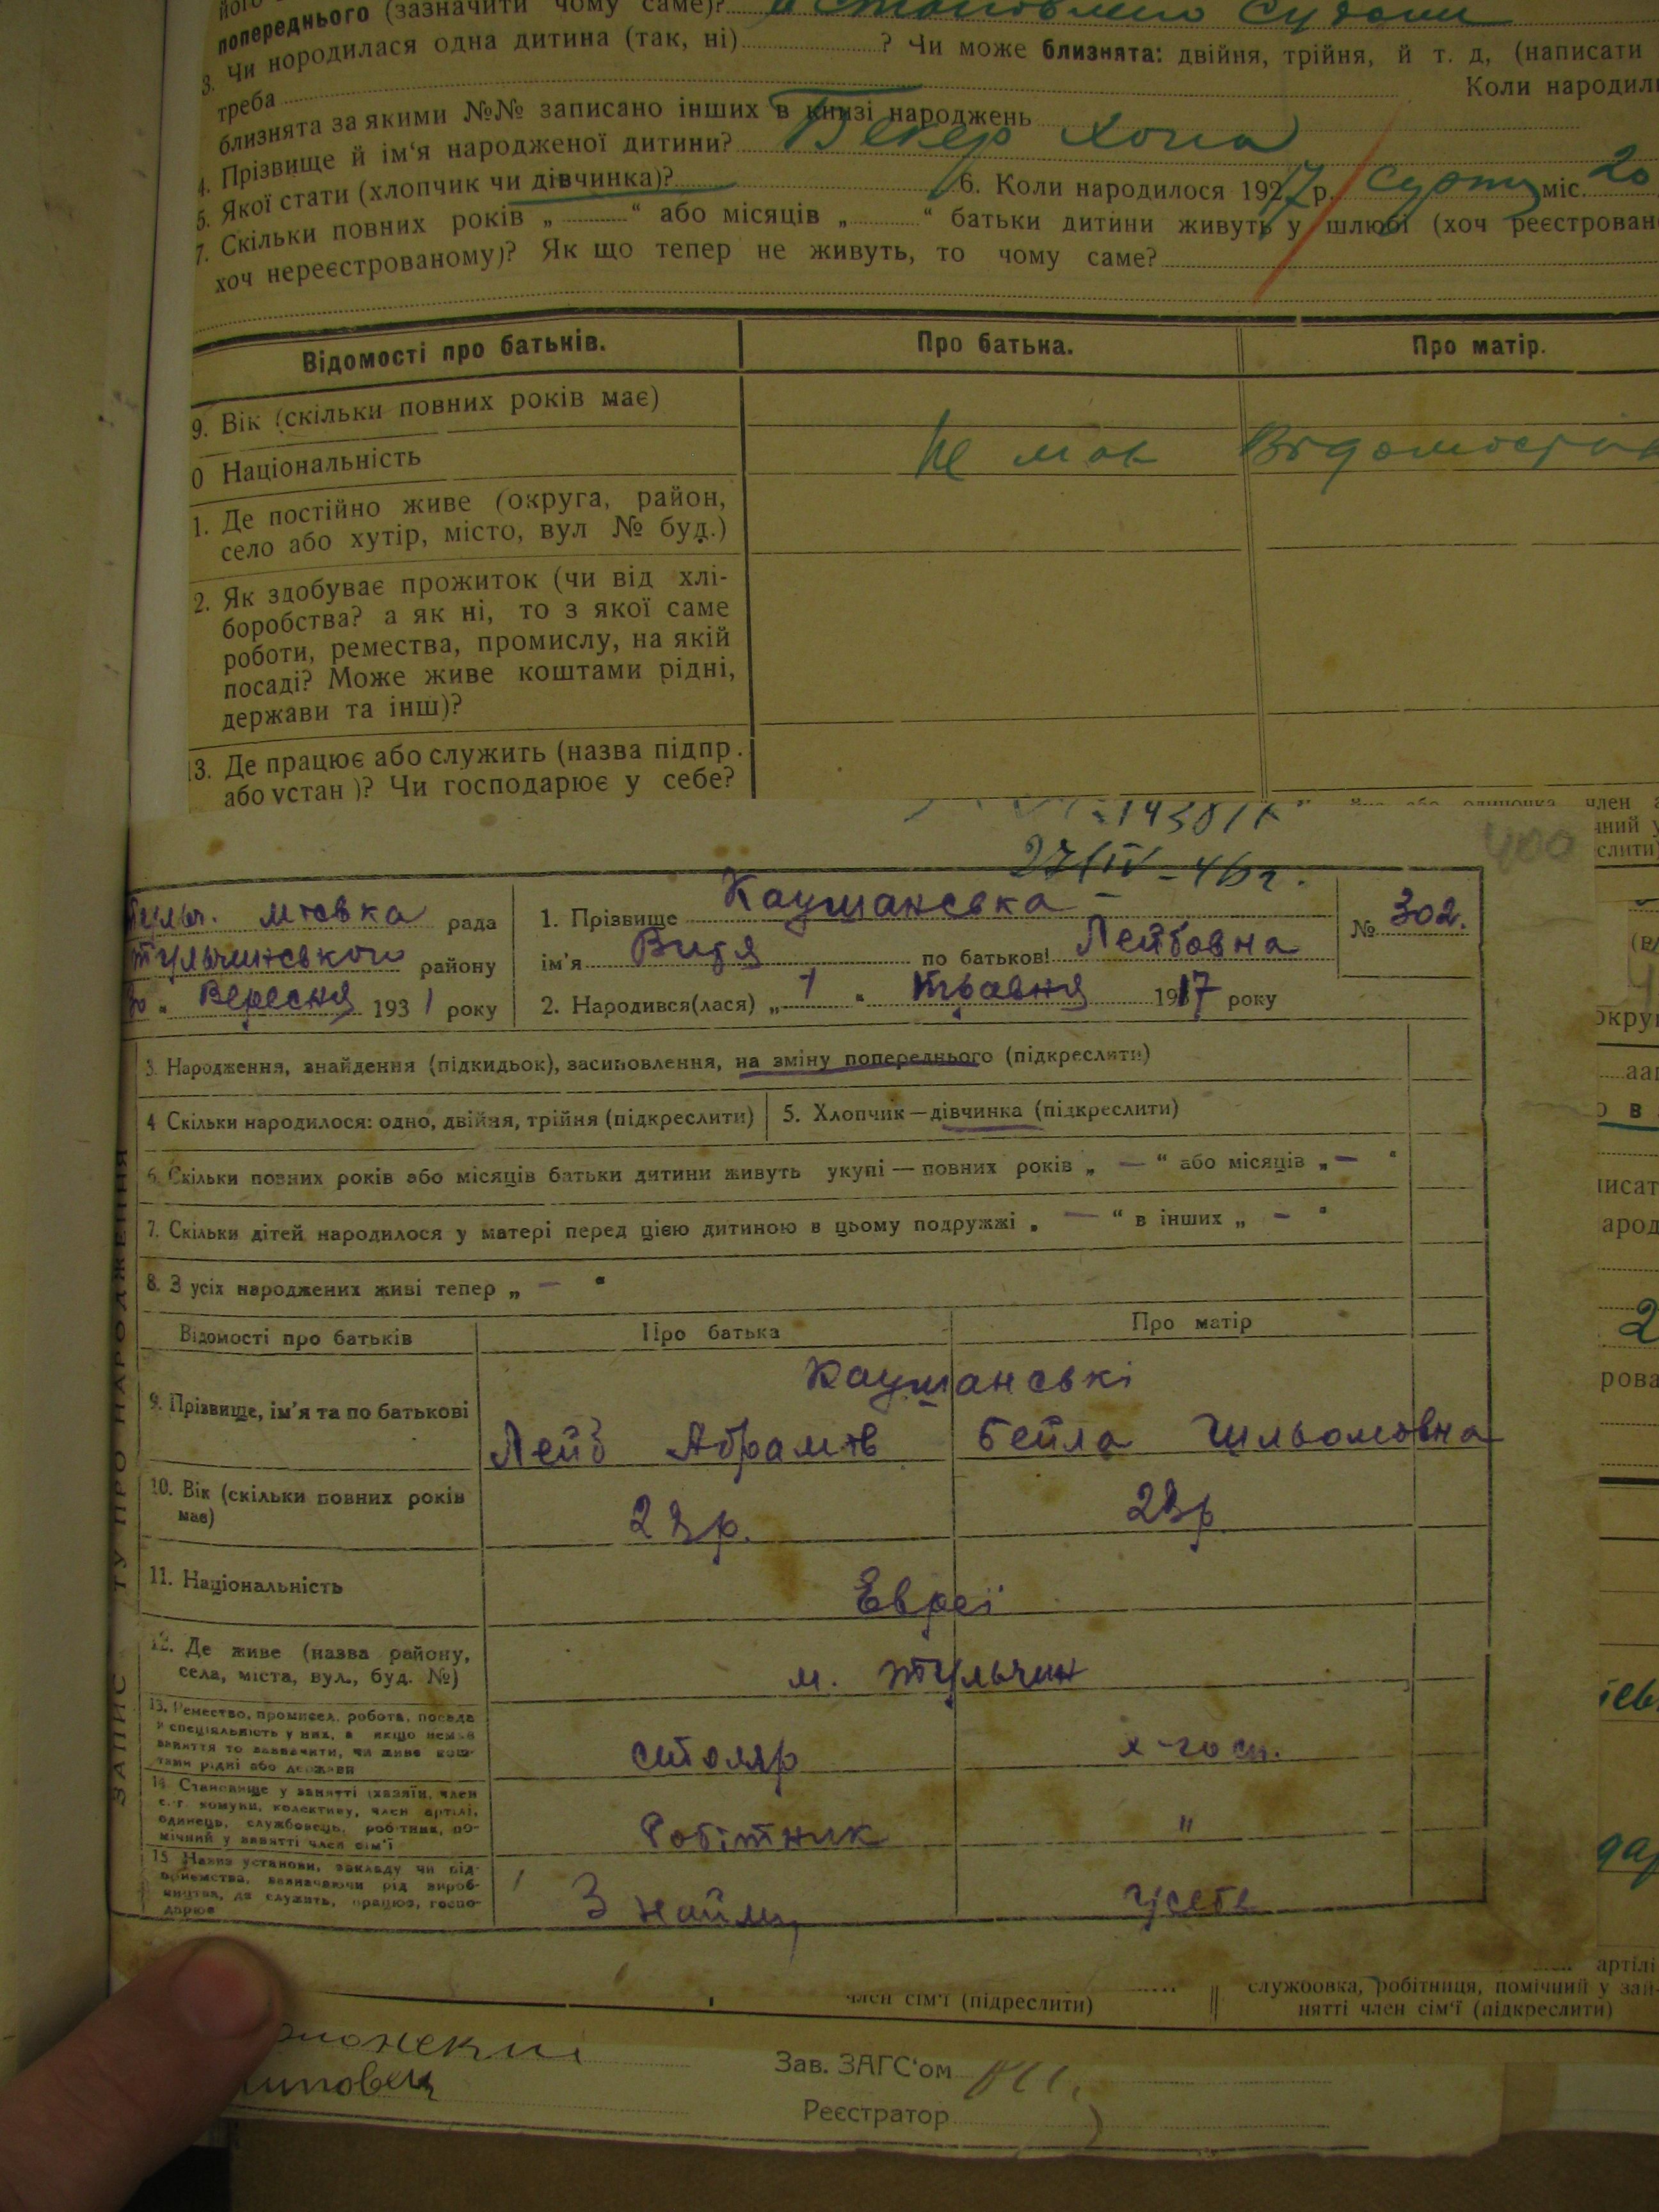 попереднього (зазначити чому саме)? Встановлено Судом
3. Чи нородилася одна дитина (так, ні) ? Чи може близнята: двійня, трійня, й т. д, (написати
треба Коли народил
близнята за якими №№ записано інших в книзі народжень
4. Прізвище й ім'я народженої дитини? Бекер Хона
5. Якої стати (хлопчик чи дівчинка)? 6. Коли народилося 1927 р. міс. 20
7. Скільки повних років „ “ або місяців „ “ батьки дитини живуть у шлюбі (хоч реєстрован
хоч нереєстрованому)? Як що тепер не живуть, то чому саме?
Відомості про батьків. Про батька. Про матір.
9. Вік (скільки повних років має)
0 Національність Не має Відомостів
1. Де постійно живе (округа, район,
село або хутір, місто, вул № буд.)
2. Як здобуває прожиток (чи від хлі-
боробства? а як ні, то з якої саме
роботи, ремества, промислу, на якій
посаді? Може живе коштами рідні,
держави та інш)?
13. Де працює або служить (назва підпр.
або устан )? Чи господарює у себе?
27/IV-41 г.
400
Тульч. міська рада
Тульчинського району
Вересня 1931 року
1. Прізвище Каушанська
№ 302.
ім'я Видя по батькові Лейбовна
2. Народився(лася) „ 1 " Травня 1917 року
3. Народження, знайдення (підкидьок), засиновлення, на зміну попереднього (підкреслити)
4 Скільки народилося: одно, двійня, трійня (підкреслити) 5. Хлопчик—дівчинка (підкреслити)
6. Скільки повних років або місяців батьки дитини живуть укупі — повних років „ — “ або місяців „ — “
7. Скільки дітей народилося у матері перед цією дитиною в цьому подружжі „ — “ в інших „ — “
8. З усіх народжених живі тепер „ — “
Відомості про батьків Про батька Про матір
9. Прізвище, ім'я та по батькові Каушанські
Лейб Абрамів Бейла Шльомовна
10. Вік (скільки повних років
має) 28р. 28р
11. Національність Евреї
12. Де живе (назва району,
села, міста, вул., буд. №) м. Тульчин
13. Ремество, промисел, робота, посада
й спеціяльність у них, а якщо немає
заняття то зазначити, чи живе кош-
тами рідні або держави столяр х-госп.
14. Становище у занятті (хазяїн, член
с.-г. комуни, колективу, член артілі,
одинець, службовець, робітник, по-
мічний у занятті член сім'ї Робітник "
15 Назва установи, закладу чи під-
приємства, зазначаючи рід вироб-
ництва, де служить, працює, госпо-
дарює З найму У себе
ЗАПИС ПРО НАРОДЖЕННЯ
артілі
член сім'ї (підреслити) службовка, робітниця, помічний у зай-
нятті член сім'ї (підкреслити)
Зав. ЗАГС'ом
Реєстратор